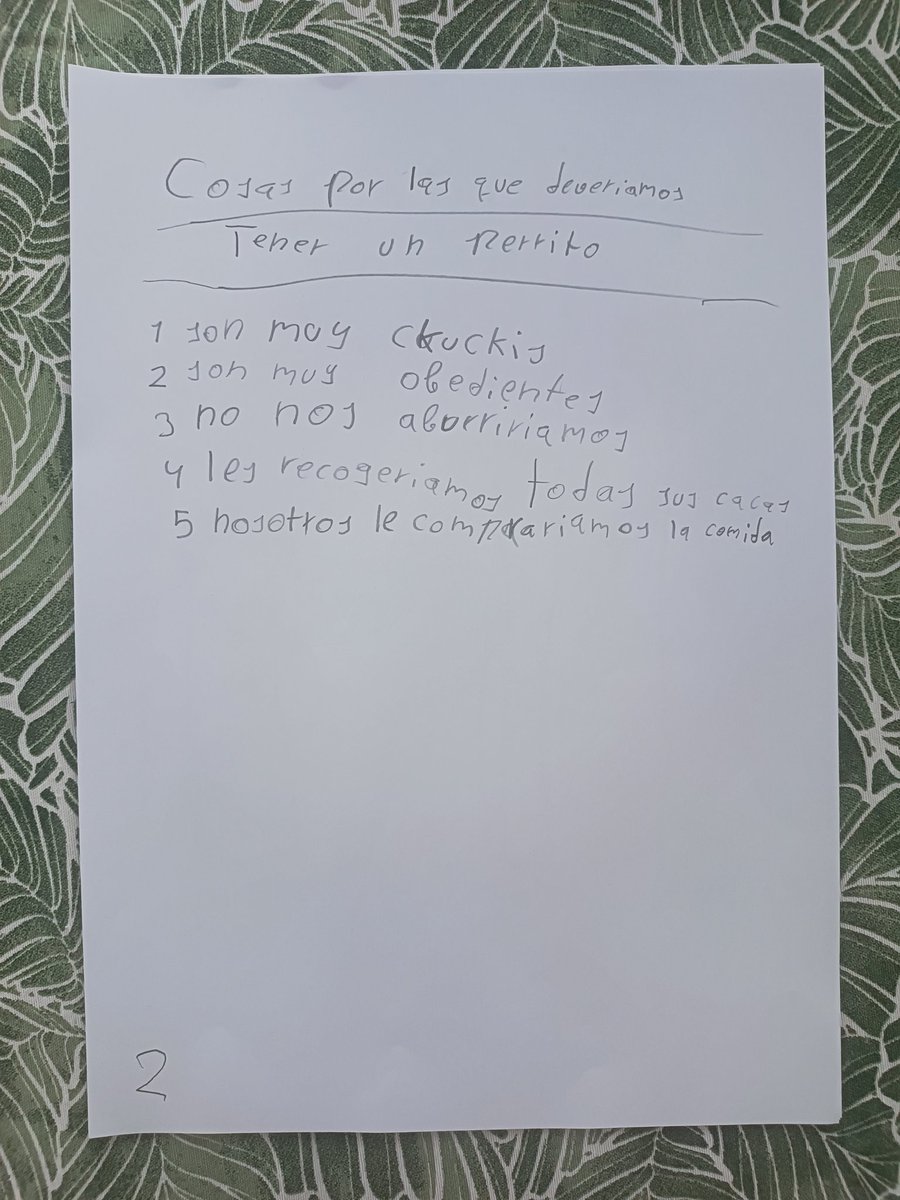 Cosas por las que deveriamos
Tener un perrito
1 son muy ckuckis
2 son muy obedientes
3 no nos aburririamos
4 les recogeriamos todas sus cacas
5 nosotros le comprariamos la comida
2